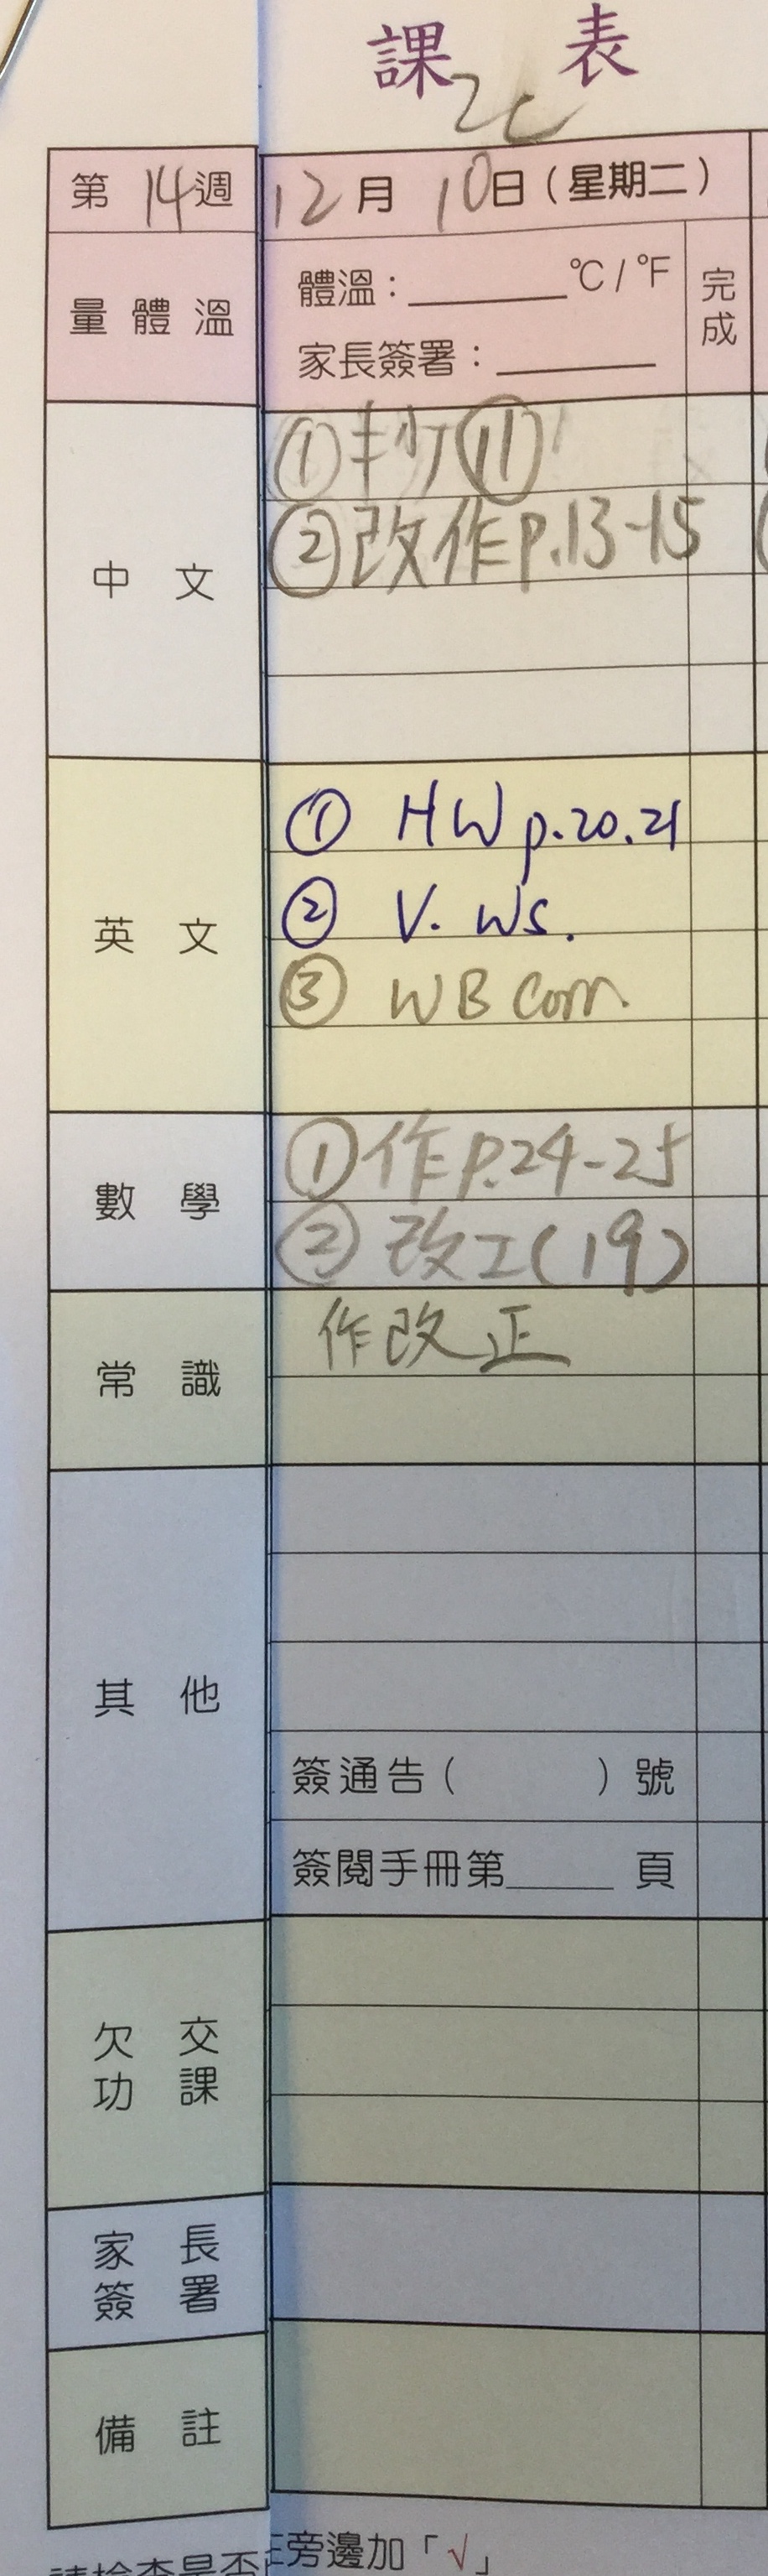 課 表
2C
第 14 週 12 月 10 日（星期二）
量 體 溫
體溫：______ °C / °F
家長簽署：______
完成
中 文
① 抄 ⑪
② 改作 p.13-15
英 文
① HW p.20.21
② V. WS.
③ WB Corr.
數 學
① 作 p.24-25
② 改工(19)
常 識
作改正
其 他
簽通告（ ）號
簽閱手冊第______ 頁
欠 交
功 課
家 長
簽 署
備 註
旁邊加「√」